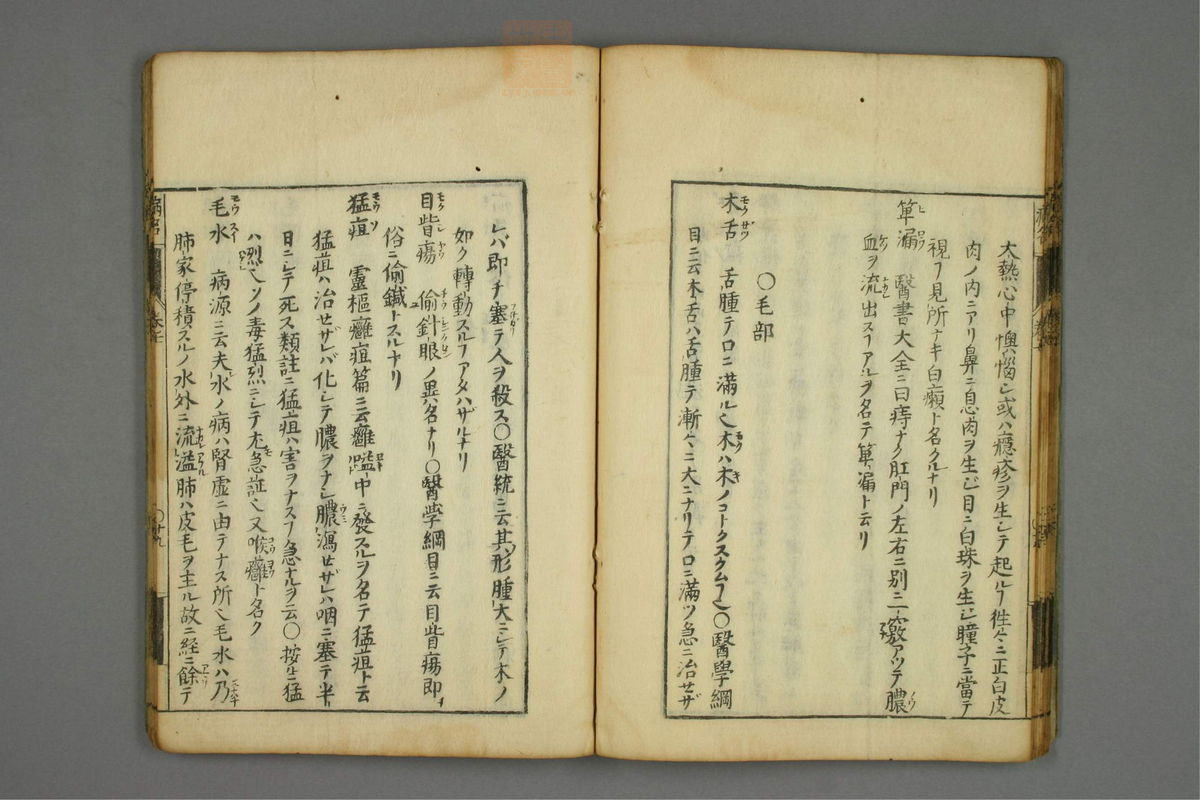 大熱心中懊惱シ或ハ癮疹ヲ生シテ起ルヿ徃々ニ正白皮
肉ノ内ニアリ鼻ニ息肉ヲ生シ目ニ白珠ヲ生シ瞳子ニ當テ
視ヿ見所ナキ白癩ト名クルナリ
箄漏 醫書大全ニ曰痔ナク肛門ノ左右ニ別ニ一竅アツテ膿
血ヲ流出スヿアルヲ名テ箄漏ト云リ
〇毛部
木舌 舌腫テ口ニ滿ル也木ハ木ノコトクスクムヿ也〇醫學綱
目ニ云木舌ハ舌腫テ漸々ニ大ニナリテ口ニ滿ツ急ニ治セザ
レバ即チ塞テ人ヲ殺ス〇醫統ニ云其形腫大ニシテ木ノ
如ク轉動スルヿアタハザルナリ
目眥瘍 偷針眼ノ異名ナリ〇醫学綱目ニ云目眥瘍即
俗ニ偷鍼トスルナリ
猛疽 靈樞癰疽篇ニ云癰嗌中ニ發スルヲ名テ猛疽ト云
猛疽ハ治セザレバ化シテ膿ヲナシ膿瀉セザレハ咽ニ塞テ半
日ニシテ死ス類註ニ猛疽ハ害ヲナスヿ急ナルヲ云〇按ルニ猛
ハ烈也ソノ毒猛烈ニシテ尤急証也又喉癰ト名ク
毛水 病源ニ云夫水ノ病ハ腎虚ニ由テナス所也毛水ハ乃
肺家停積スルノ水外ニ流溢肺ハ皮毛ヲ主ル故ニ経ニ餘テ